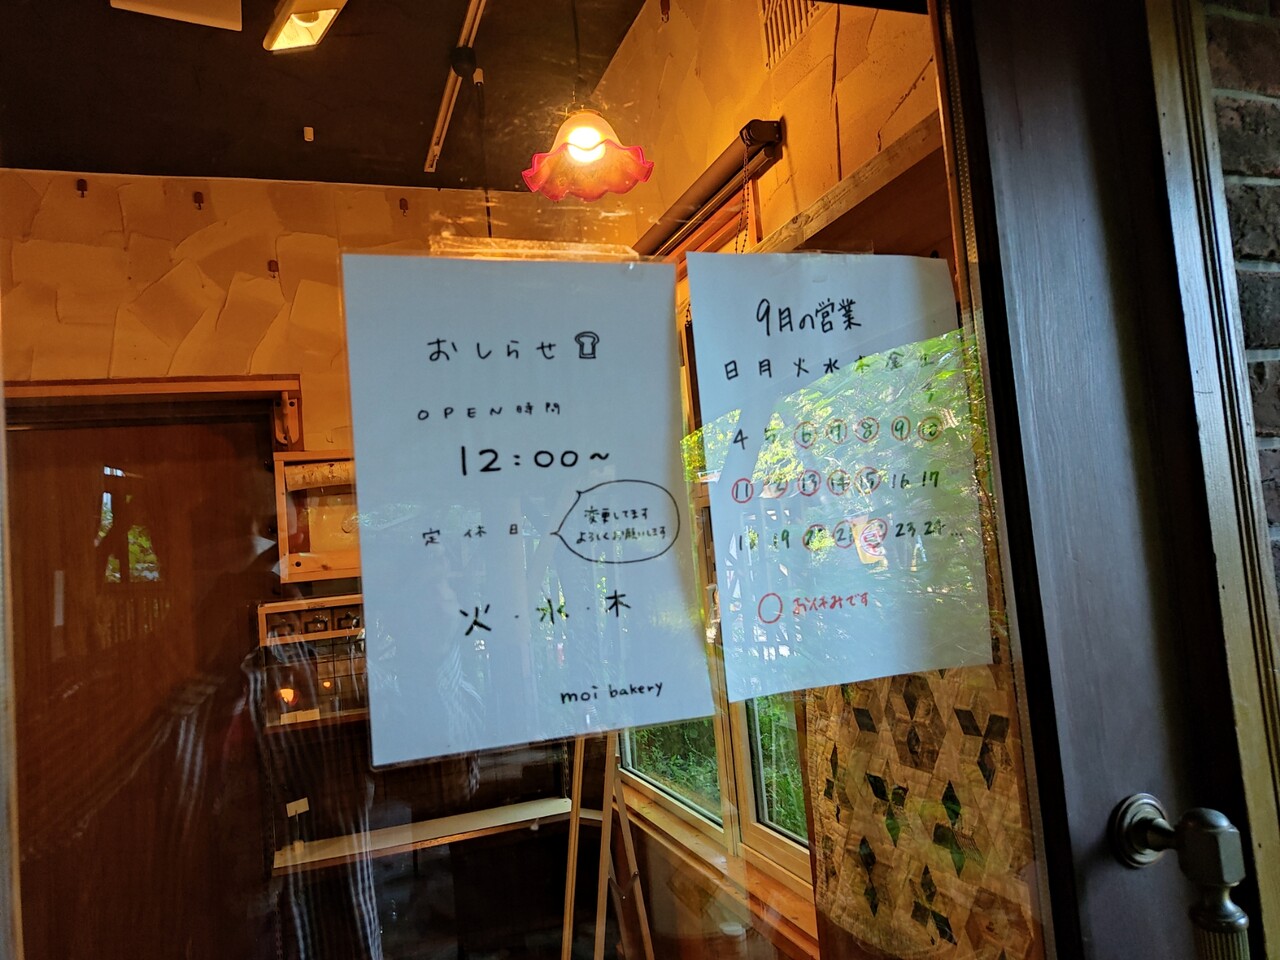 おしらせ
OPEN時間
12:00~
定休日
変更してます
よろしくお願いします
火・水・木
moi bakery
9月の営業
日 月 火 水 木 金 土
4 5 6 7 8 9 10
11 12 13 14 15 16 17
18 19 20 21 22 23 24...
○ お休みです